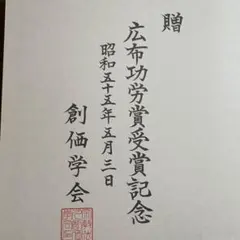 贈
広布功労賞受賞記念
昭和五十五年五月三日
創価学会